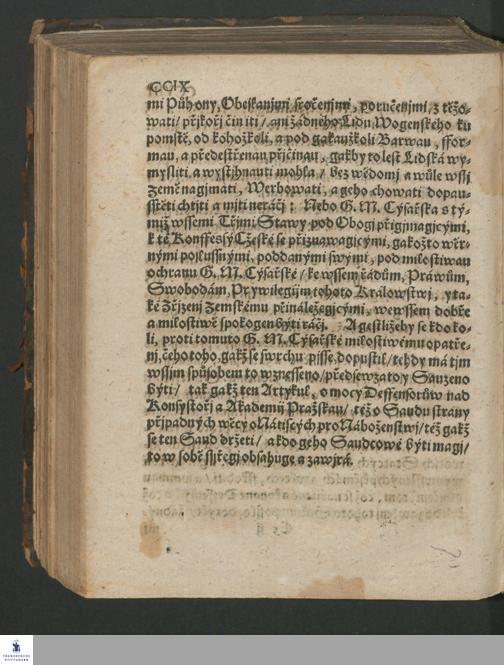 CCIX
mi Půhony, Obeslanjmi, sročenjmi, poručenjmi, z těžo-
wati / přjkořj činiti / ani žádného Lidu Wogenského ku
pomstě, od kohožkoli, a pod gakaužkoli Barwau, ffor-
mau, a předestřenau přjčinau, gakby to lest Lidská wy-
mysliti a wystjhnauti mohla / bez wědomj a wůle wssj
Země nagjmati, Werbowati, a geho chowati dopau-
sstěti chtjti a mjti neráčj: Nebo G. M. Cýsařská s tý-
miž wssemi Třjmi Stawy pod Obogj přigjmagjcými,
k té Konffessý Cžeské se přiznawagjcými, gakožto wěr-
nými poslussnými, poddanými swými, pod milostiwau
ochranu G. M. Cýsařské / ke wssem řádům, Práwům,
Swobodám, Prywilegijm tohoto Králowstwj, y ta-
ké Zřjzenj Zemskému přináležegjcými, we wssem dobře
a milostiwě spokogen býti ráčj. A gestližeby se kdo ko-
li, proti tomuto G. M. Cýsařské milostiwému opatře-
nj, čeho toho, gakž se swrchu pjsse, dopustil / tehdy má tjm
wssjm způsobem to wznesseno / předsewzato y Sauzeno
býti / tak gakž ten Artykul, o mocy Deffensorůw nad
Konsystořj a Akademij Pražskau / též o Saudu strany
přjpadných wěcý o Nátiscých pro Náboženstwj / též gakž
se ten Saud držeti / a kdo geho Saudcowé býti magj /
to w sobě ssjřegj obsahuge a zawjrá.
FRANCKESCHE
STIFTUNGEN